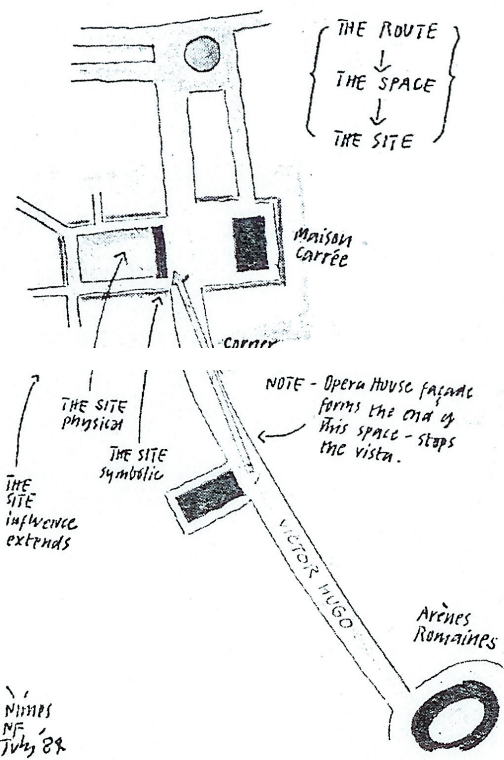 THE ROUTE
THE SPACE
THE SITE
Maison
Carrée
corner
NOTE - Opera House façade
forms the end of
this space - stops
the vista.
THE SITE
physical
THE SITE
symbolic
THE
SITE
influence
extends
VICTOR HUGO
Arènes
Romaines
Nîmes
NF
July '84